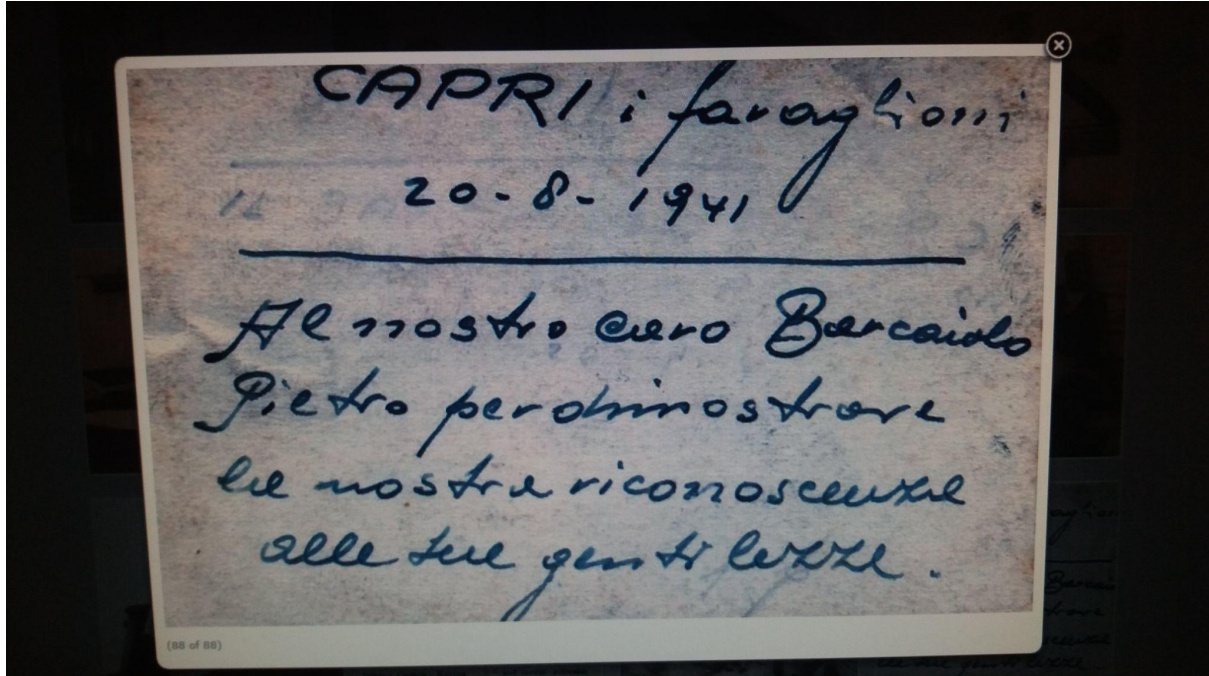 CAPRI i faraglioni
20-8-1941
Al nostro caro Barcaiolo
Pietro perdimostrare
la nostra riconoscenza
alle tue gentilezze.
(88 of 88)